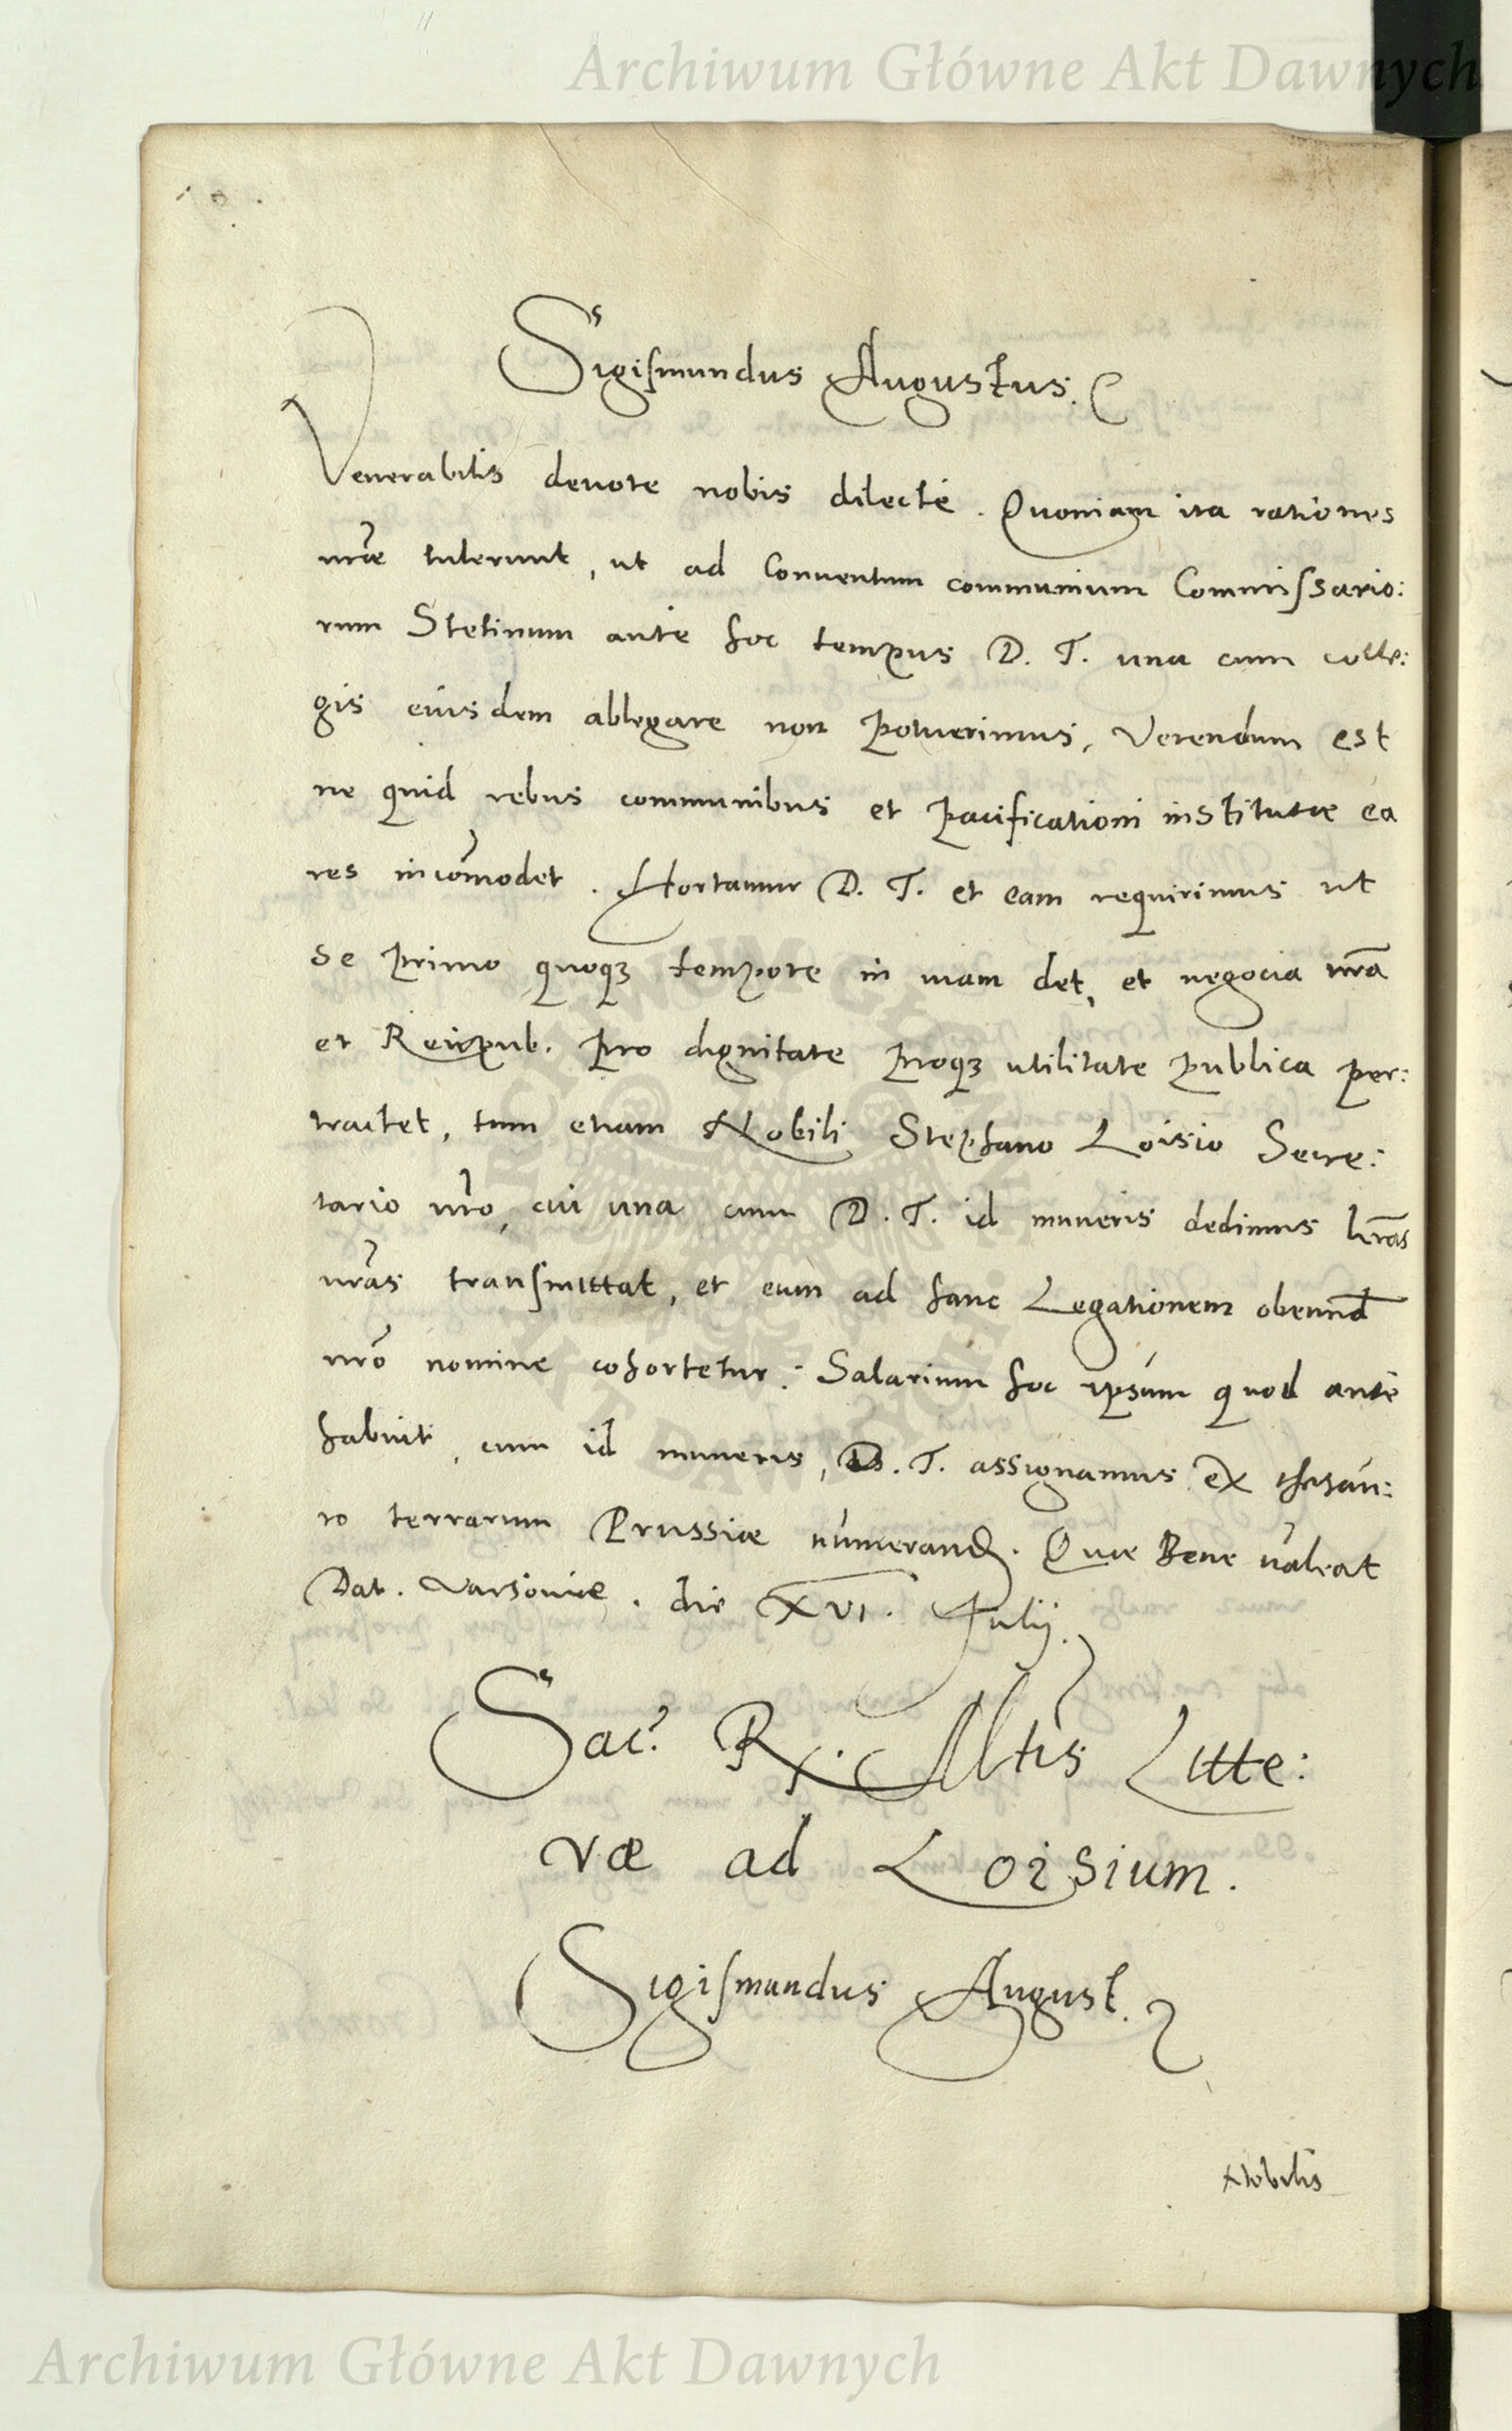 Archiwum Główne Akt Dawnych
Sigismundus Augustus.
Venerabilis deuote nobis dilecte. Quoniam ita rationes
nr̃ae tulerunt, ut ad Conuentum communium Commissario:
rum Stetinum ante hoc tempus D. T. una cum colle:
gis eiusdem ablegare non potuerimus, Verendum est
ne quid rebus communibus et pacificationi institutae ea
res incõmodet. Hortamur D. T. et eam requirimus ut
se primo quoqꝫ tempore in uiam det, et negocia nr̃a
et Reipub. pro dignitate proqꝫ utilitate publica per:
tractet, tum etiam Nobili Stephano Loisio Secre:
tario nr̃o, cui una cum D. T. id muneris dedimus lr̃as
nr̃as transmittat, et eum ad hanc Legationem obeund̃
nr̃o nomine cohortetur: Salarium hoc ipsum quod ante
habuit, cum id muneris, D. T. assignamus ex thesau:
ro terrarum Prussiae numerand. Quae Bene ualeat
Dat. Varsouiae. die XVI. Julij.
Sac. R. Mtis Litte:
rae ad Loisium.
Sigismundus August.
Nobilis
Archiwum Główne Akt Dawnych